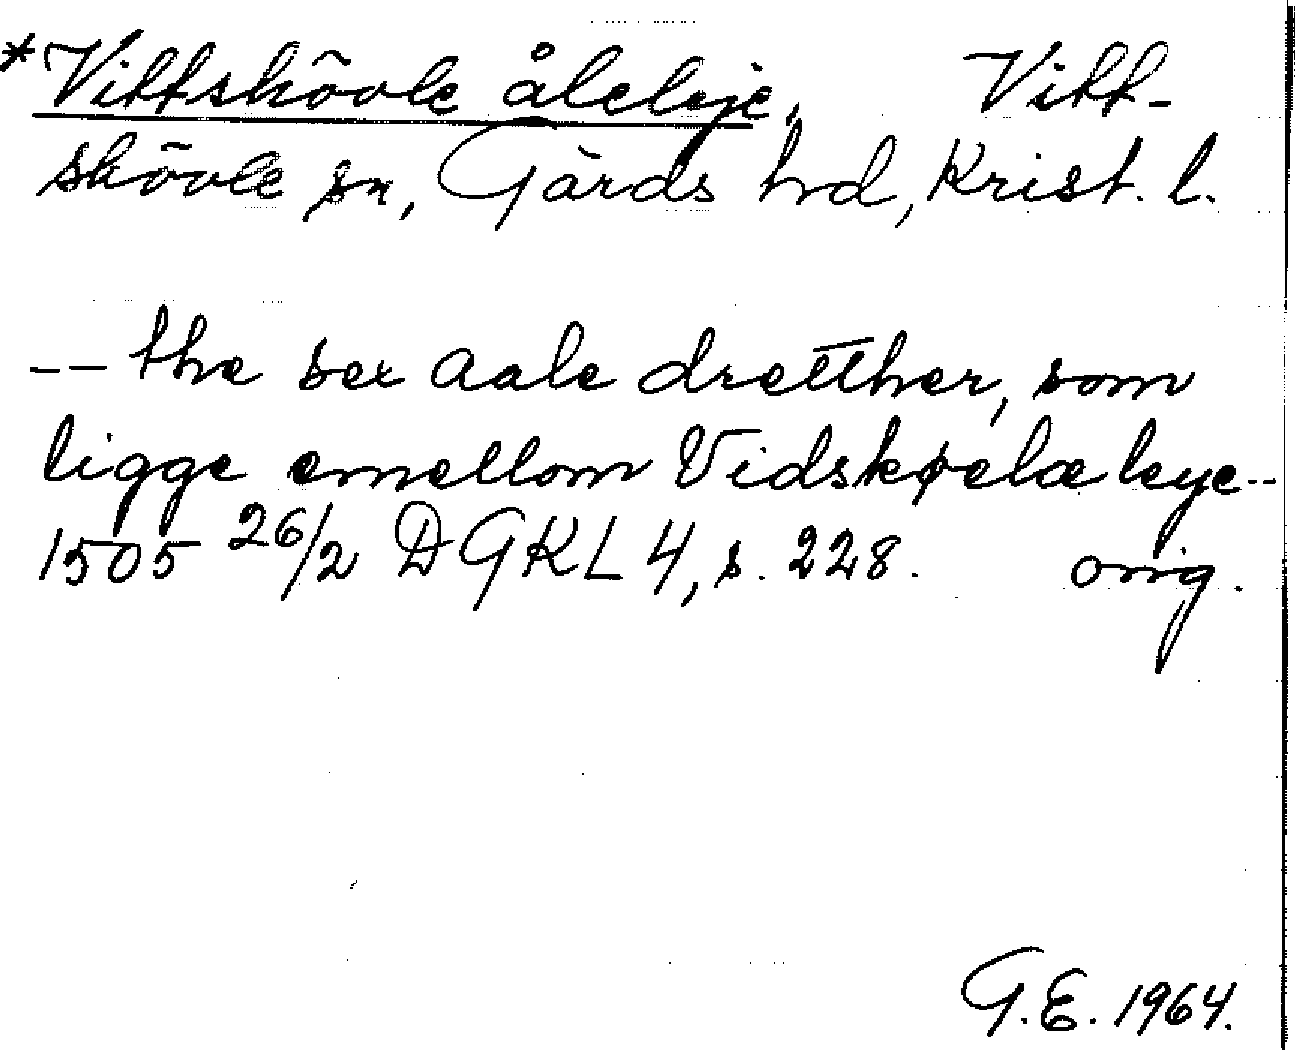 *Vittskövle åleleje, Vitt-
skövle sn, Gärds hd, Krist. l.
-- the sex aale dretther, som
ligge emellom Vidskøelæ leye--
1505 26/2 DGKL 4, s. 228. orig.
G.E. 1964.